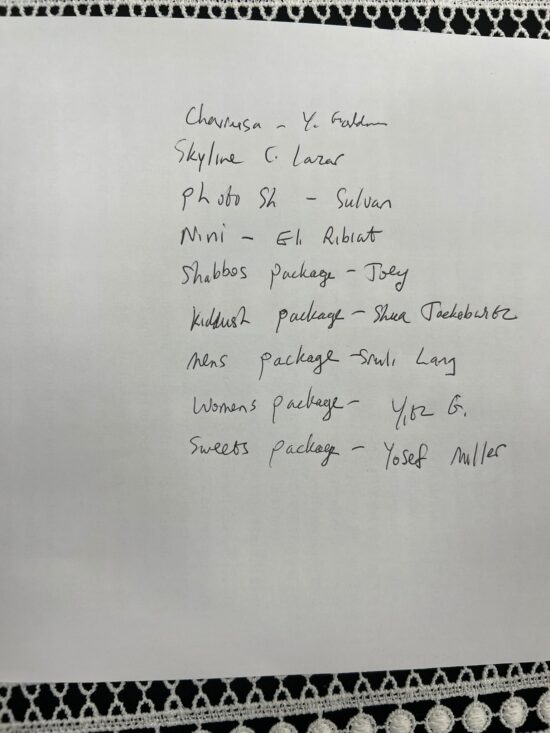 Chavrusa - Y.
Skyline C. Lazar
Photo Sh - Sulvan
Nini - Eli Ribiat
Shabbos package - Joey
Kiddush package - Shua
Mens package - Sruli Lang
Womens package - Yitz G.
Sweets package - Yosef Miller